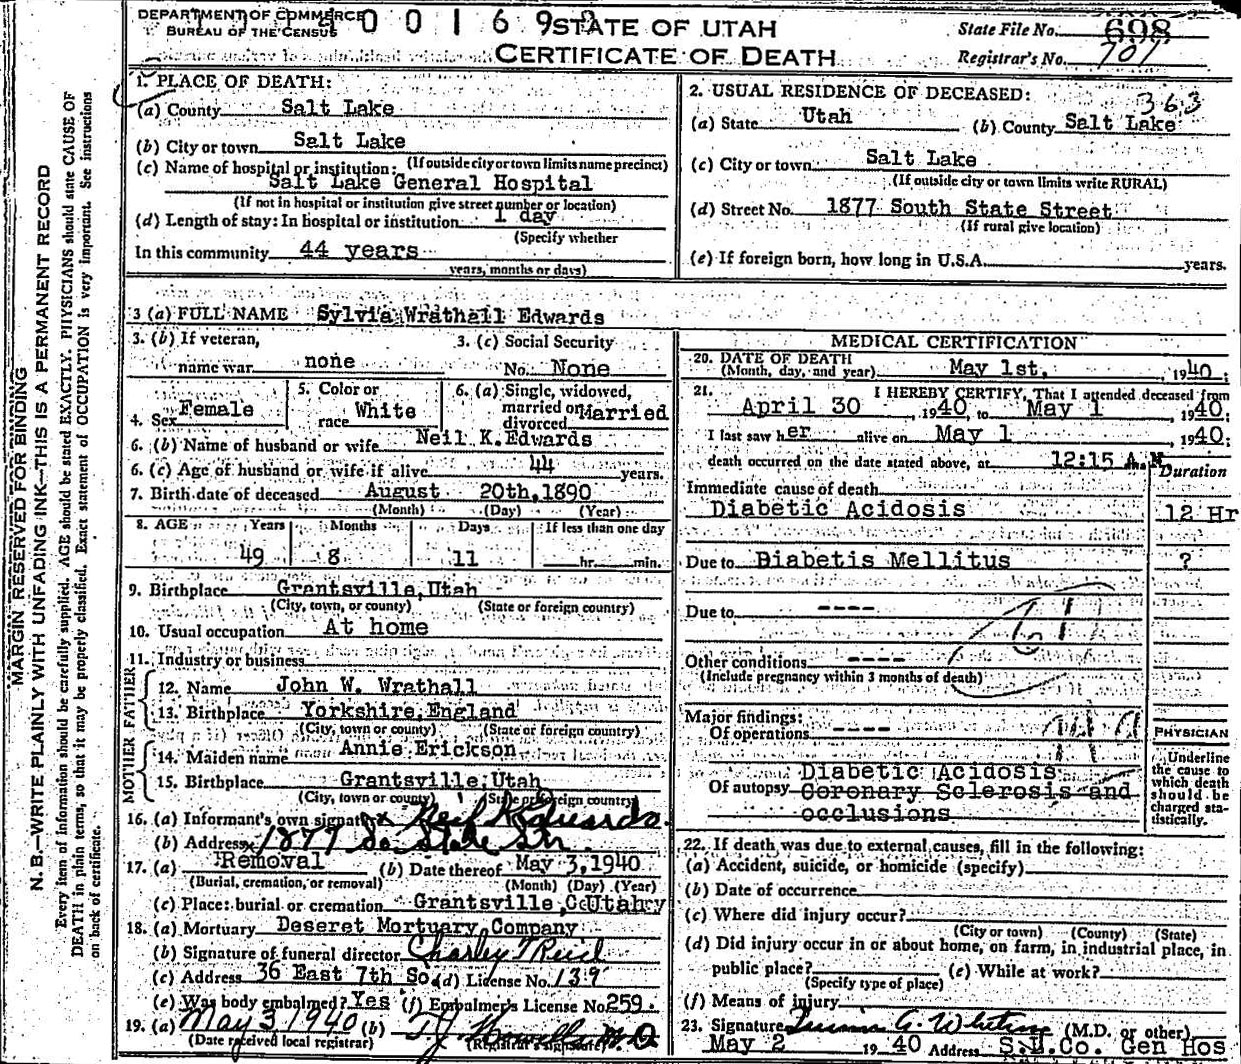 DEPARTMENT OF COMMERCE
BUREAU OF THE CENSUS
0 0 1 6 9
STATE OF UTAH
CERTIFICATE OF DEATH
State File No. 698
Registrar's No. 701
MARGIN RESERVED FOR BINDING
N. B.—WRITE PLAINLY WITH UNFADING INK—THIS IS A PERMANENT RECORD
Every item of information should be carefully supplied. AGE should be stated EXACTLY. PHYSICIANS should state CAUSE OF
DEATH in plain terms, so that it may be properly classified. Exact statement of OCCUPATION is very important. See instructions
on back of certificate.
1. PLACE OF DEATH:
(a) County Salt Lake
(b) City or town Salt Lake
(If outside city or town limits name precinct)
(c) Name of hospital or institution:
Salt Lake General Hospital
(If not in hospital or institution give street number or location)
(d) Length of stay: In hospital or institution 1 day
(Specify whether
In this community 44 years
years, months or days)
2. USUAL RESIDENCE OF DECEASED:
363
(a) State Utah (b) County Salt Lake
(c) City or town Salt Lake
(If outside city or town limits write RURAL)
(d) Street No. 1877 South State Street
(If rural give location)
(e) If foreign born, how long in U.S.A. years.
3 (a) FULL NAME Sylvia Wrathall Edwards
3. (b) If veteran, name war none
3. (c) Social Security No. None
4. Sex Female
5. Color or race White
6. (a) Single, widowed, married or divorced Married
6. (b) Name of husband or wife Neil K. Edwards
6. (c) Age of husband or wife if alive 44 years.
7. Birth date of deceased August 20th, 1890
(Month) (Day) (Year)
8. AGE Years Months Days If less than one day
49 8 11 hr. min.
9. Birthplace Grantsville, Utah
(City, town, or county) (State or foreign country)
10. Usual occupation At home
11. Industry or business
FATHER
12. Name John W. Wrathall
13. Birthplace Yorkshire, England
(City, town or county) (State or foreign country)
MOTHER
14. Maiden name Annie Erickson
15. Birthplace Grantsville, Utah
(City, town or county) (State or foreign country)
16. (a) Informant's own signature x Neil K Edwards.
(b) Address x 1877 So State Str.
17. (a) Removal (b) Date thereof May 3, 1940
(Burial, cremation, or removal) (Month) (Day) (Year)
(c) Place: burial or cremation Grantsville, Utah
18. (a) Mortuary Deseret Mortuary Company
(b) Signature of funeral director Charley T Reid
(c) Address 36 East 7th So. (d) License No. 139
(e) Was body embalmed? Yes (f) Embalmer's License No. 259.
19. (a) May 3 1940 (b) T.J. Howells M.D
(Date received local registrar) (Registrar's signature)
MEDICAL CERTIFICATION
20. DATE OF DEATH
(Month, day, and year) May 1st, 1940;
21. I HEREBY CERTIFY, That I attended deceased from
April 30, 1940, to May 1 1940;
I last saw her alive on May 1, 1940;
death occurred on the date stated above, at 12:15 A.M
Duration
Immediate cause of death
Diabetic Acidosis 12 Hr
Due to Diabetis Mellitus ?
Due to ----
61
Other conditions ----
(Include pregnancy within 3 months of death)
Major findings:
Of operations ----
PHYSICIAN
Underline
the cause to
which death
should be
charged sta-
tistically.
Of autopsy Diabetic Acidosis
Coronary Sclerosis and
occlusions
22. If death was due to external causes, fill in the following:
(a) Accident, suicide, or homicide (specify)
(b) Date of occurrence
(c) Where did injury occur?
(City or town) (County) (State)
(d) Did injury occur in or about home, on farm, in industrial place, in
public place? (e) While at work?
(Specify type of place)
(f) Means of injury
23. Signature (M.D. or other)
May 2 1940 Address S.L.Co. Gen Hos